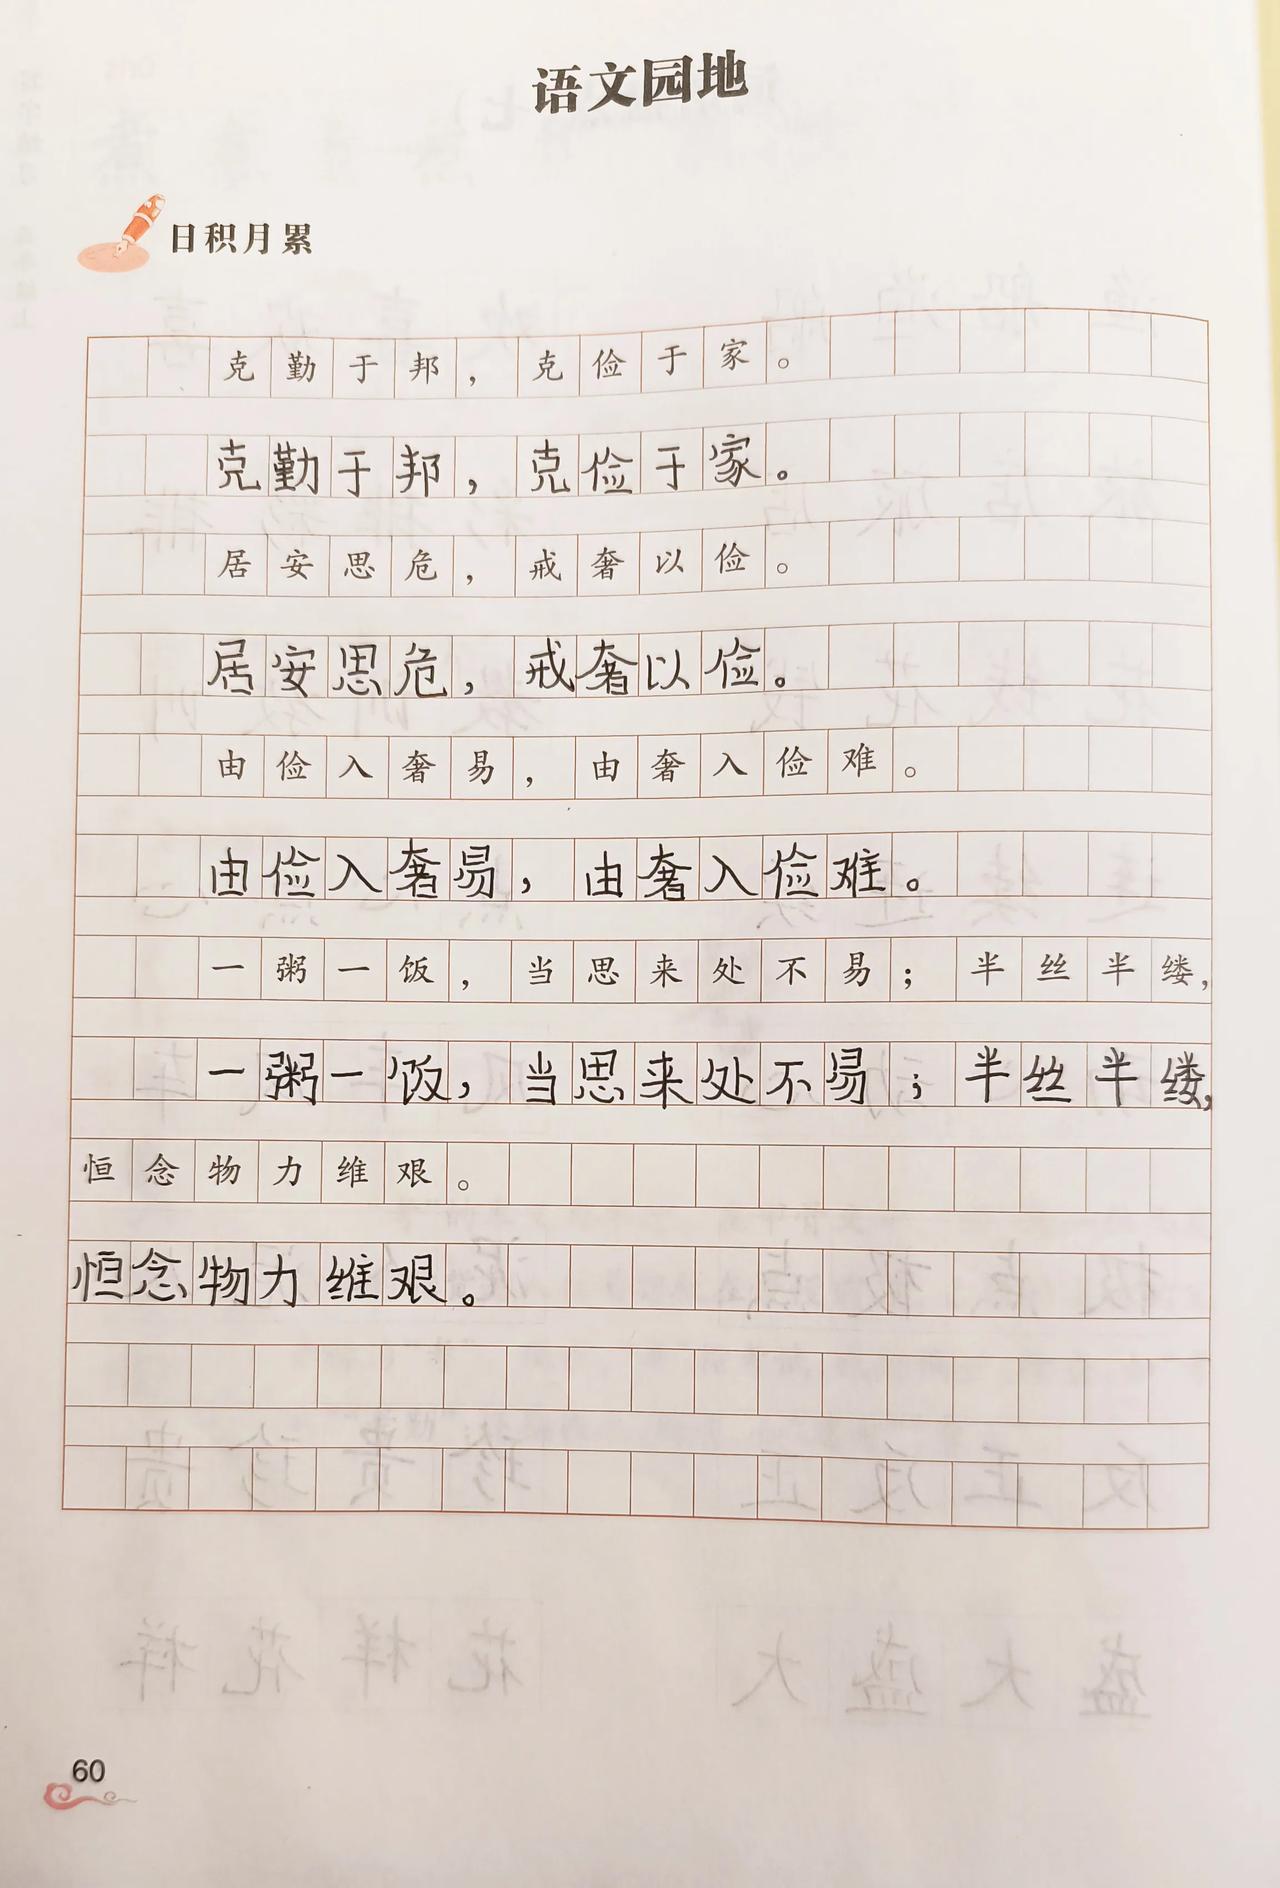 语文园地
日积月累
克勤于邦，克俭于家。
克勤于邦，克俭于家。
居安思危，戒奢以俭。
居安思危，戒奢以俭。
由俭入奢易，由奢入俭难。
由俭入奢易，由奢入俭难。
一粥一饭，当思来处不易；半丝半缕，
一粥一饭，当思来处不易；半丝半缕，
恒念物力维艰。
恒念物力维艰。
60